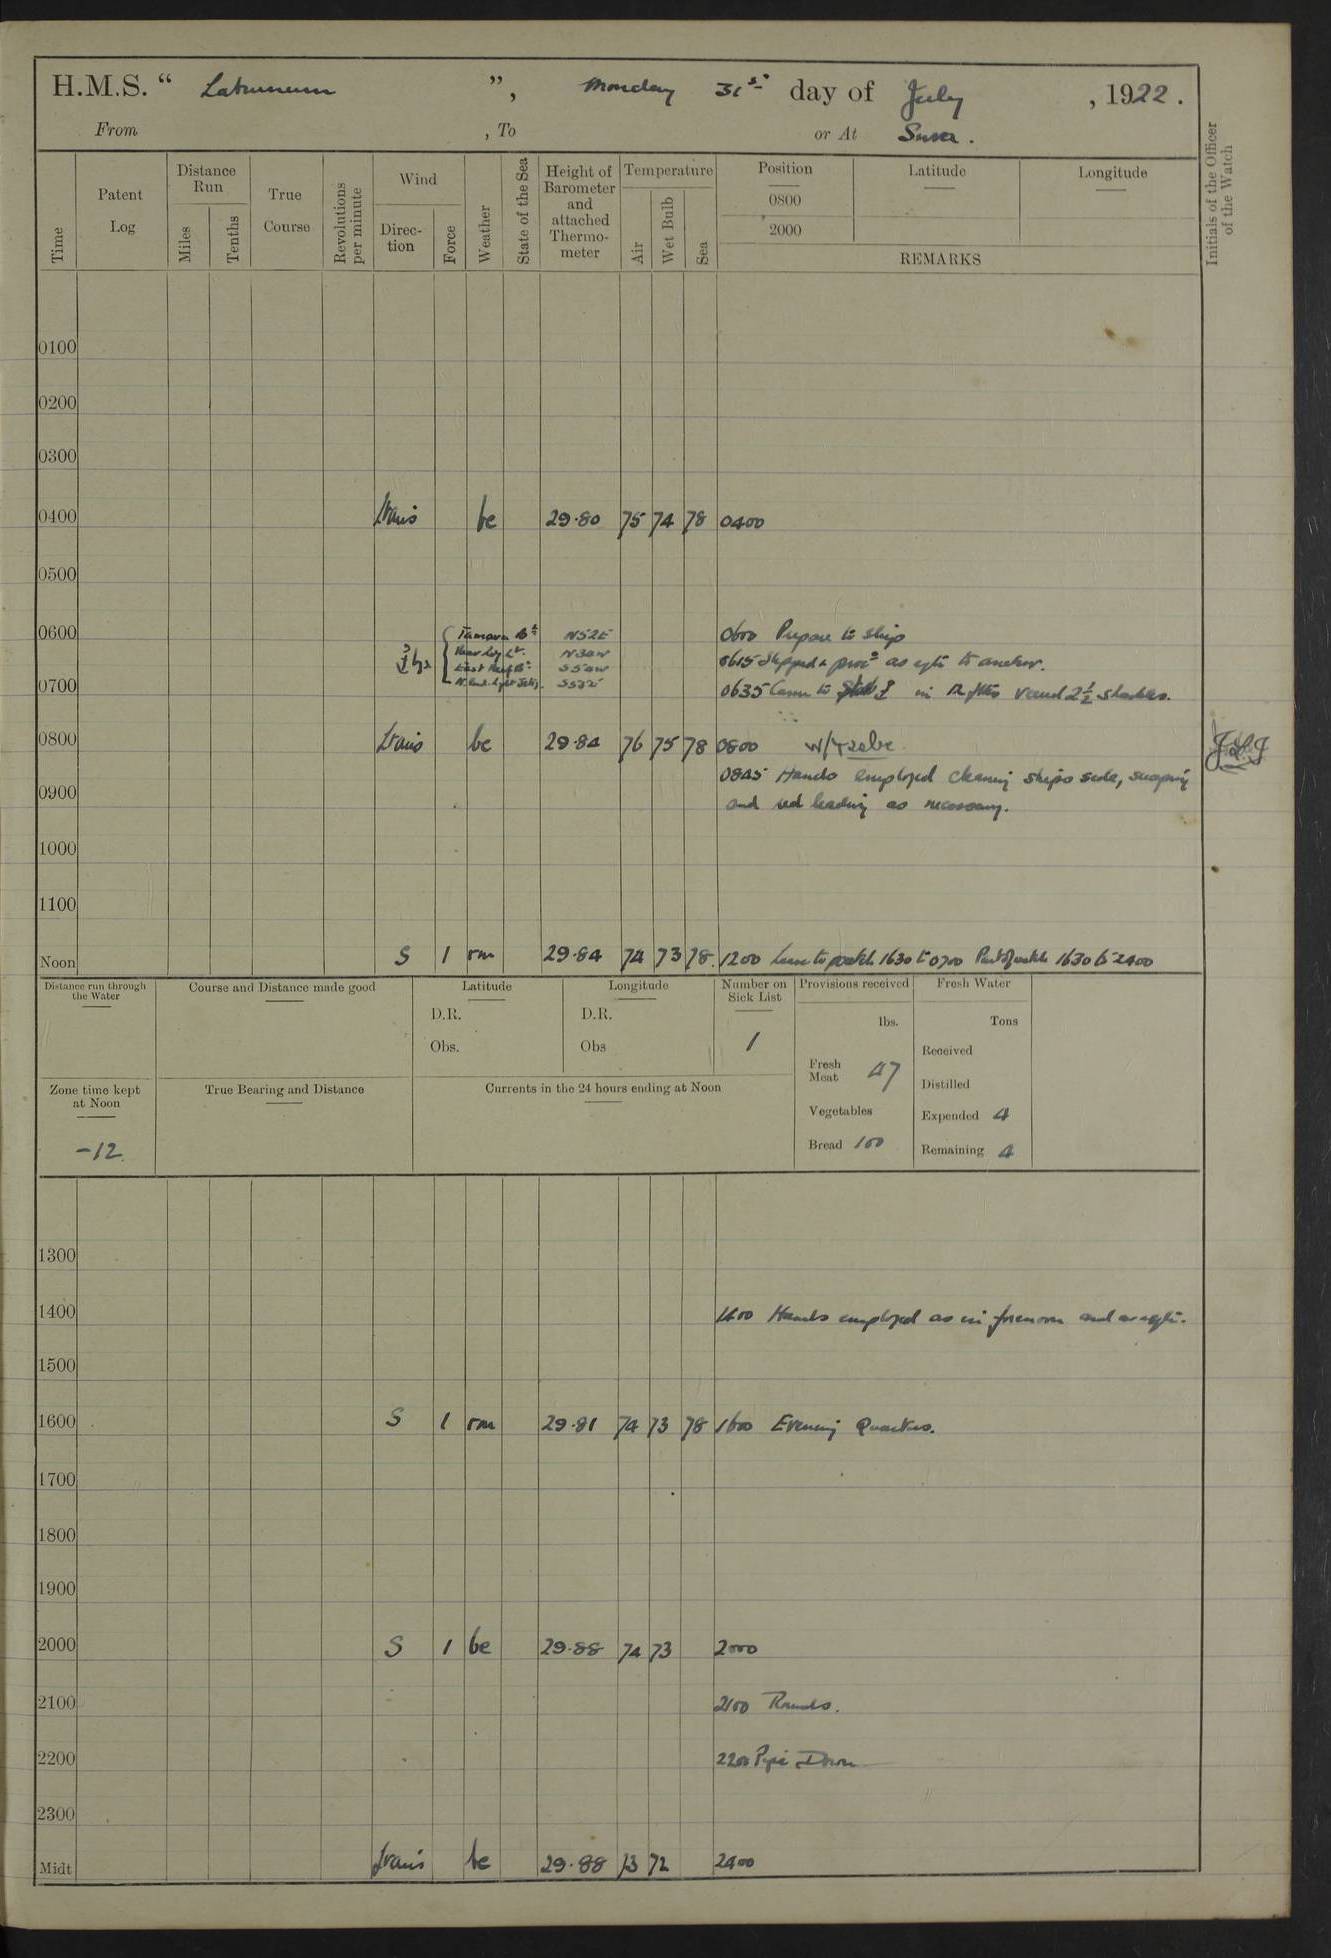 H.M.S. “ Laburnum ”, Monday 31st day of July , 1922.
From , To or At Suva.
Time
Patent Log
Distance Run
Miles
Tenths
True Course
Revolutions per minute
Wind
Direction
Force
Weather
State of the Sea
Height of Barometer and attached Thermometer
Temperature
Air
Wet Bulb
Sea
Position
0800
2000
Latitude
Longitude
REMARKS
Initials of the Officer of the Watch
0100
0200
0300
0400 bc 29.80 75 74 78 0400
0500
0600 N52E 0600 Prepare to slip
N30W 0615 Slipped & procd as reqte to anchor.
East Reef Bn S50W
0700 0635 Came to in 12 fms veered 2½ shackles.
0800 bc 29.84 76 75 78 0800
0845 Hands employed cleaning ships side, scraping
0900 and red leading as necessary.
1000
1100
Noon S 1 rm 29.84 74 73 78 1200 Leave to 1630 to 0700 1630 to 2400
Distance run through the Water
Course and Distance made good
Latitude
D.R.
Obs.
Longitude
D.R.
Obs
Number on Sick List
1
Provisions received
lbs.
Fresh Meat 47
Vegetables
Bread 100
Fresh Water
Tons
Received
Distilled
Expended 4
Remaining 4
Zone time kept at Noon
-12
True Bearing and Distance
Currents in the 24 hours ending at Noon
1300
1400 1400 Hands employed as in forenoon and as reqte.
1500
1600 S 1 rm 29.81 74 73 78 1600 Evening Quarters.
1700
1800
1900
2000 S 1 bc 29.88 74 73 2000
2100 2100 Rounds.
2200 2200 Pipe Down
2300
Midt bc 29.88 73 72 2400